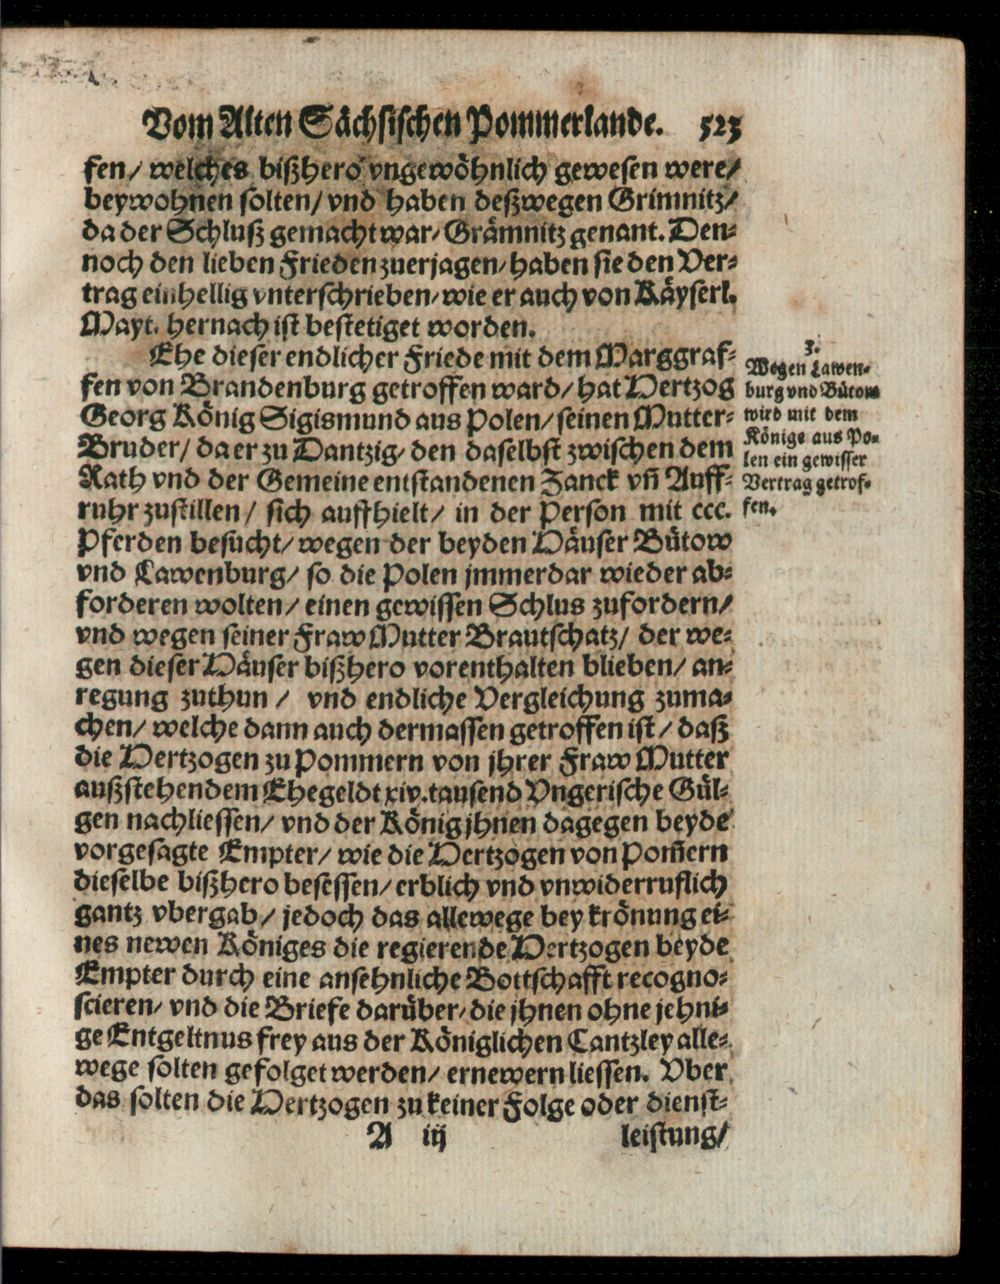 Vom Alten Sächsischen Pommerlande. 525
fen/ welches bißhero vngewöhnlich gewesen were/
beywohnen solten/ vnd haben deßwegen Grimnitz/
da der Schluß gemacht war/ Grämnitz genant. Den⸗
noch den lieben Frieden zuerjagen/ haben sie den Ver⸗
trag einhellig vnterschrieben/ wie er auch von Käyserl.
Mayt. hernach ist bestetiget worden.
Ehe dieser endlicher Friede mit dem Marggraf⸗
fen von Brandenburg getroffen ward/ hat Hertzog
Georg König Sigismund aus Polen/ seinen Mutter⸗
Bruder/ da er zu Dantzig/ den daselbst zwischen dem
Rath vnd der Gemeine entstandenen Zanck vñ Auff⸗
ruhr zustillen/ sich auffhielt/ in der Person mit ccc.
Pferden besucht/ wegen der beyden Häuser Bütow
vnd Lawenburg/ so die Polen jmmerdar wieder ab⸗
forderen wolten/ einen gewissen Schlus zufordern/
vnd wegen seiner Fraw Mutter Brautschatz/ der we⸗
gen dieser Häuser bißhero vorenthalten blieben/ an⸗
regung zuthun/ vnd endliche Vergleichung zuma⸗
chen/ welche dann auch dermassen getroffen ist/ daß
die Hertzogen zu Pommern von jhrer Fraw Mutter
außstehendem Ehegeldt xiv. tausend Vngerische Gül⸗
gen nachliessen/ vnd der König jhnen dagegen beyde
vorgesagte Empter/ wie die Hertzogen von Pom̃ern
dieselbe bißhero besessen/ erblich vnd vnwiderruflich
gantz vbergab/ jedoch das allewege bey krönung ei⸗
nes newen Königes die regierende Hertzogen beyde
Empter durch eine ansehnliche Bottschafft recogno⸗
scieren/ vnd die Briefe darüber/ die jhnen ohne jehni⸗
ge Entgeltnus frey aus der Königlichen Cantzley alle⸗
wege solten gefolget werden/ ernewern liessen. Vber
das solten die Hertzogen zu keiner Folge oder dienst⸗
A iij leistung/
3.
Wegen Lawen⸗
burg vnd Bütow
wird mit dem
Könige aus Po⸗
len ein gewisser
Vertrag getrof⸗
fen.